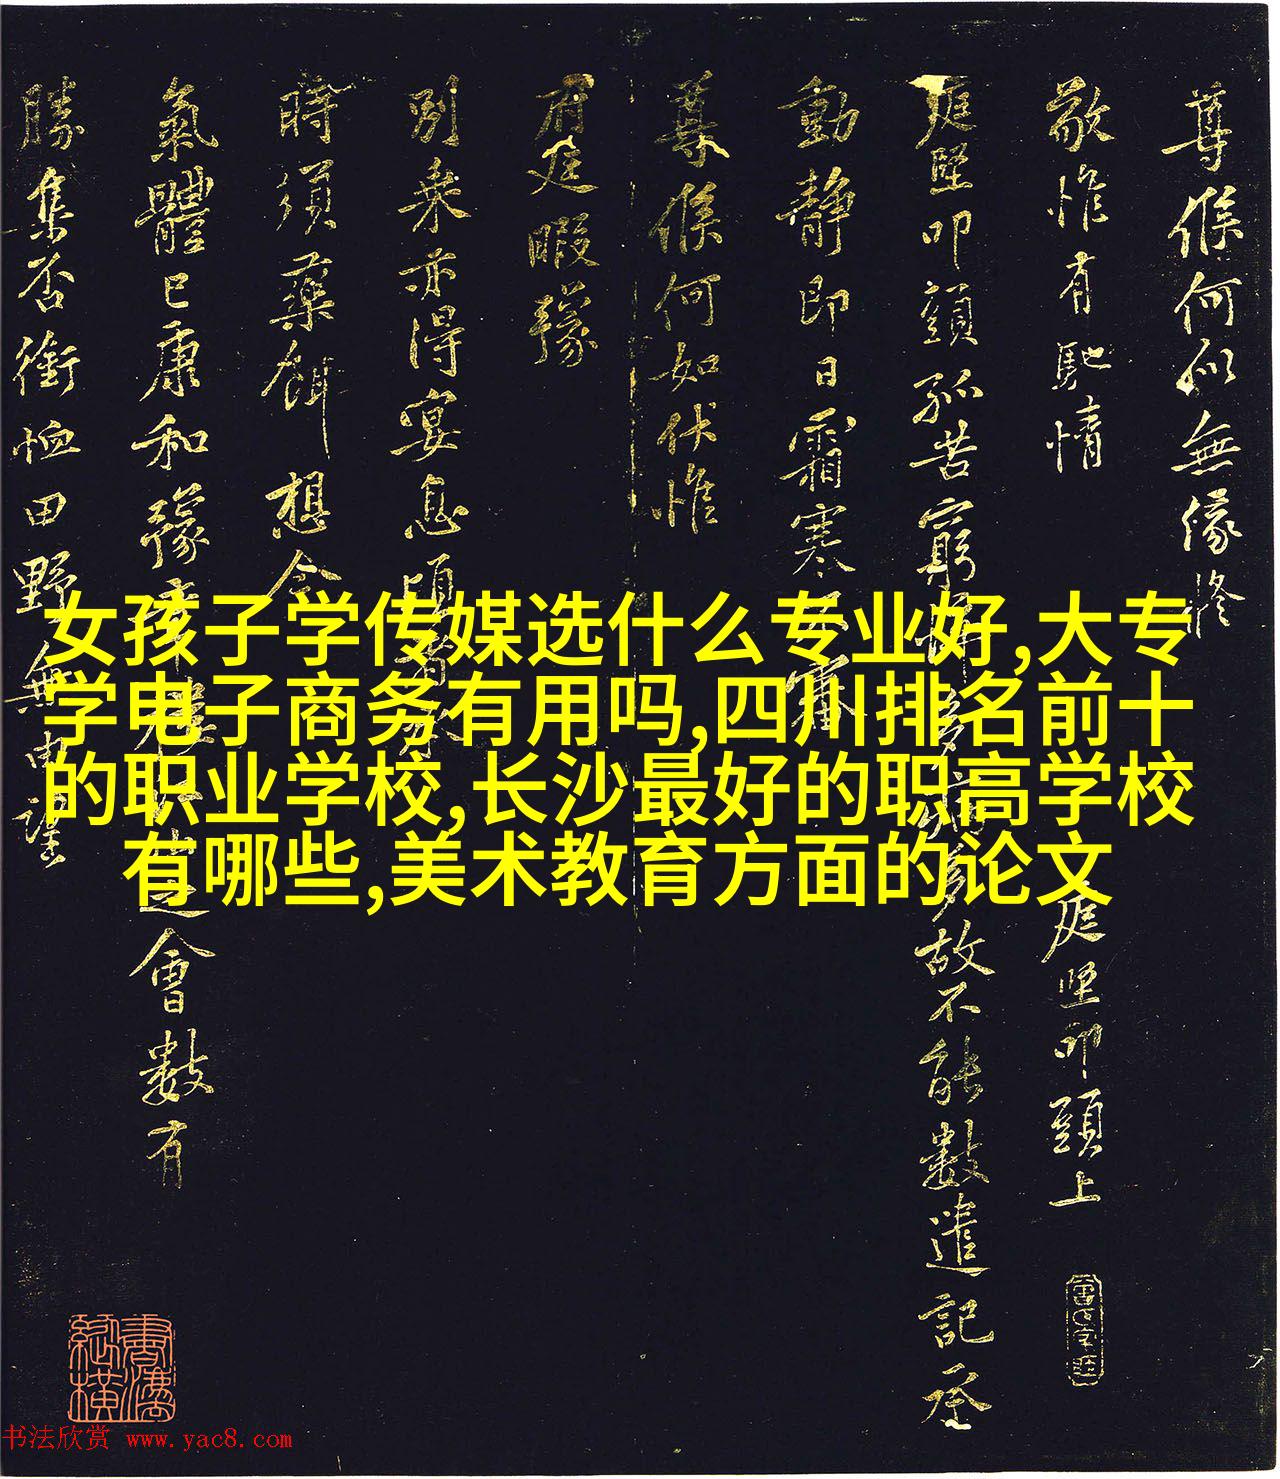 尊候何似無緣修
敬惟有馳情
庭堅叩頭上
庭堅叩頭孤苦窮
故不能數遣記承
動静即日霜寒
尊候何如伏惟
府庭暇豫
别乘亦得宴息
時須藥餌想今
氣體已康和豫
之會數有
勝集否銜恤田野無由
女孩子学传媒选什么专业好,大专
学电子商务有用吗,四川排名前十
的职业学校,长沙最好的职高学校
有哪些,美术教育方面的论文
书法欣赏 www.yac8.com